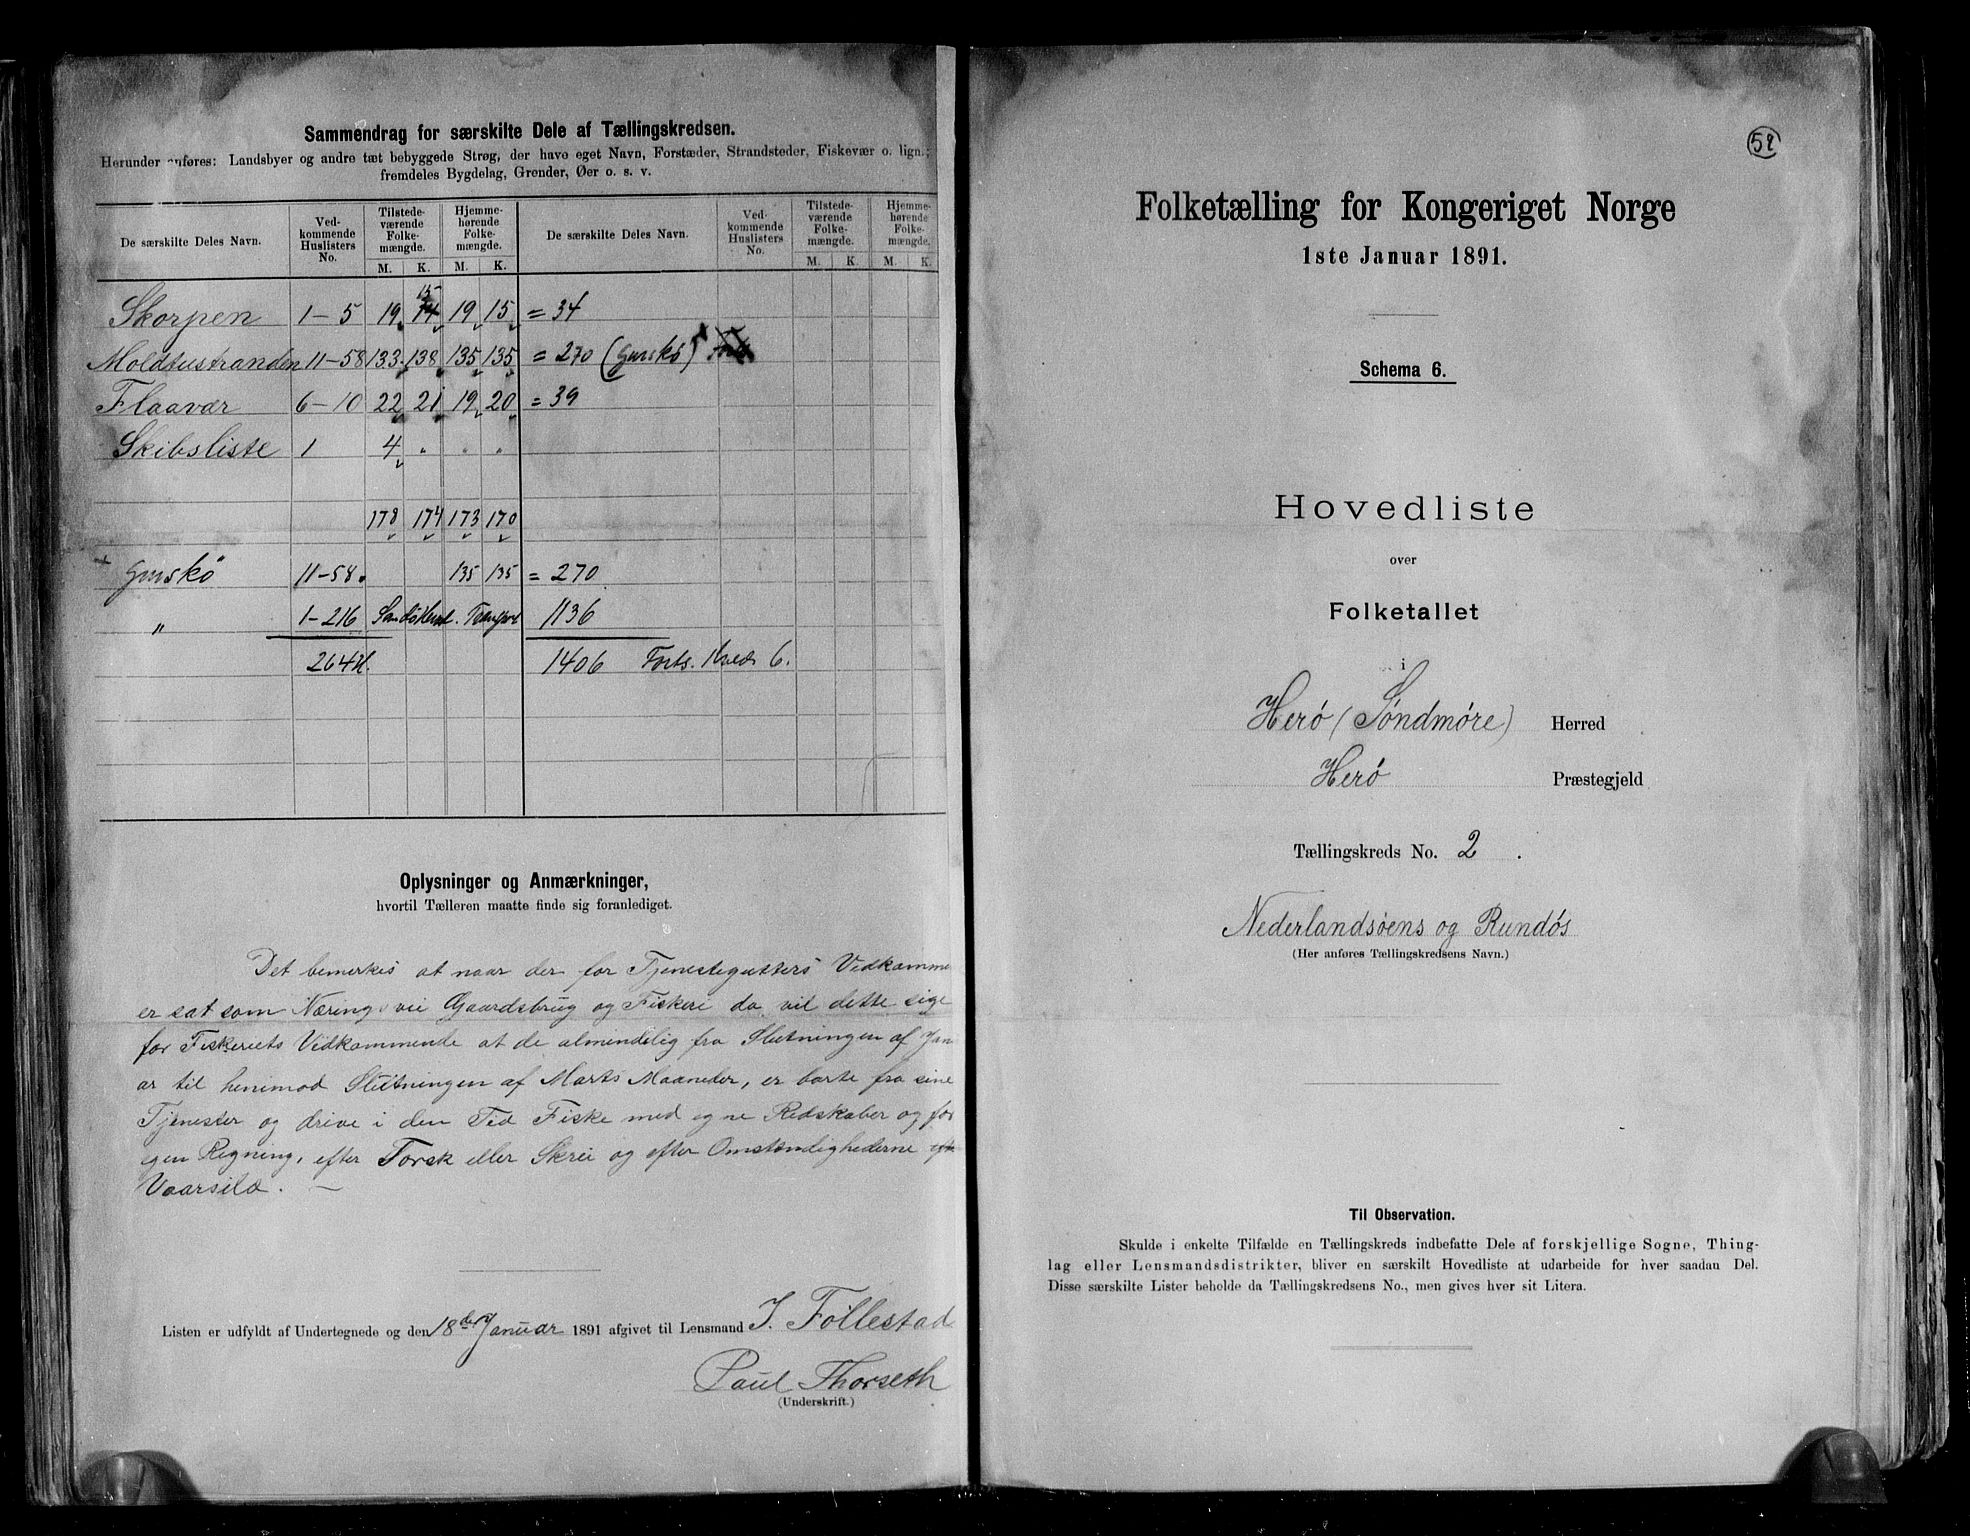 Sammendrag for særskilte Dele af Tællingskredsen.
Herunder anføres: Landsbyer og andre tæt bebyggede Strøg, der have eget Navn, Forstæder, Strandsteder, Fiskevær o. lign.;
fremdeles Bygdelag, Grender, Øer o. s. v.
De særskilte Deles Navn. Ved-kommende Huslisters No. Tilstede-værende Folke-mængde. Hjemme-hørende Folke-mængde. De særskilte Deles Navn. Ved-kommende Huslisters No. Tilstede-værende Folke-mængde. Hjemme-hørende Folke-mængde.
M. K. M. K. M. K. M. K.
15
Skorpen 1-5 19 14 19 15 = 34
Moldtustranden 11-58 133 138 135 135 = 270 (Gurskö)
Flaavær 6-10 22 21 19 20 = 39
Skibsliste 1 4 " " "
178 174 173 170
+ Gurskö 11-58. 135 135 = 270
" 1-216 1136
264 1406 Forts. Kreds 6.
Oplysninger og Anmærkninger,
hvortil Tælleren maatte finde sig foranlediget.
Det bemerkes at naar der for Tjenestegutters Vedkomme
er sat som Næringsvei Gaardsbrug og Fiskeri da vil dette sige
for Fiskeriets Vidkommende at de almindelig fra Slutningen af Jan
ar til henimod Slutningen af Marts Maaneder, er borte fra sine
Tjenester og drive i den Tid Fiske med egne Redskaber og for
egen Regning, efter Torsk eller Skrei og efter Omstændighederne
Vaarsild. —
Listen er udfyldt af Undertegnede og den 18den Januar 1891 afgivet til Lensmand J. Follestad
Paul Thorseth
(Underskrift.)
59
Folketælling for Kongeriget Norge
1ste Januar 1891.
Schema 6.
Hovedliste
over
Folketallet
i
Herö (Söndmöre) Herred
Herö Præstegjeld
Tællingskreds No. 2.
Nederlandsöens og Rundös
(Her anføres Tællingskredsens Navn.)
Til Observation.
Skulde i enkelte Tilfælde en Tællingskreds indbefatte Dele af forskjellige Sogne, Thing-
lag eller Lensmandsdistrikter, bliver en særskilt Hovedliste at udarbeide for hver saadan Del.
Disse særskilte Lister beholde da Tællingskredsens No., men gives hver sit Litera.